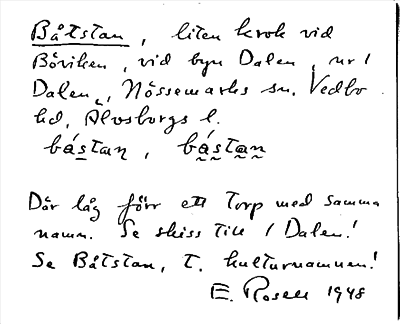 Båtstan, liten krok vid
Böviken, vid byn Dalen, nr 1
Dalen, Nössemarks sn. Vedbo
hd, Älvsborgs l.
bástaɳ, bástaɳ
Där låg förr ett torp med samma
namn. Se skiss till 1 Dalen!
Se Båtstan, t. kulturnamnen!
E. Rosell 1948